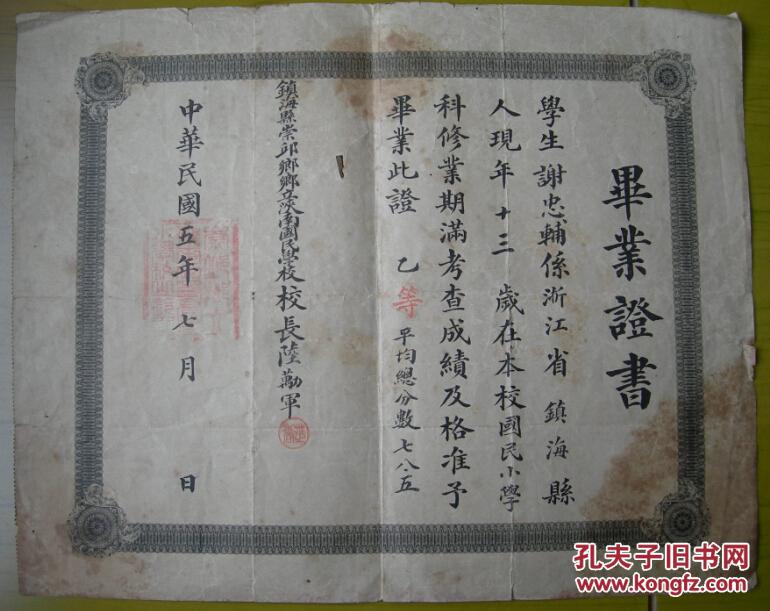 畢業證書
學生謝忠輔係浙江省鎮海縣
人現年十三歲在本校國民小學
科修業期滿考查成績及格准予
畢業此證 乙等 平均總分數七八.五
鎮海縣崇邱鄉鄉立渡南國民學校校長陸勱軍
中華民國五年七月 日
孔夫子旧书网
www.kongfz.com